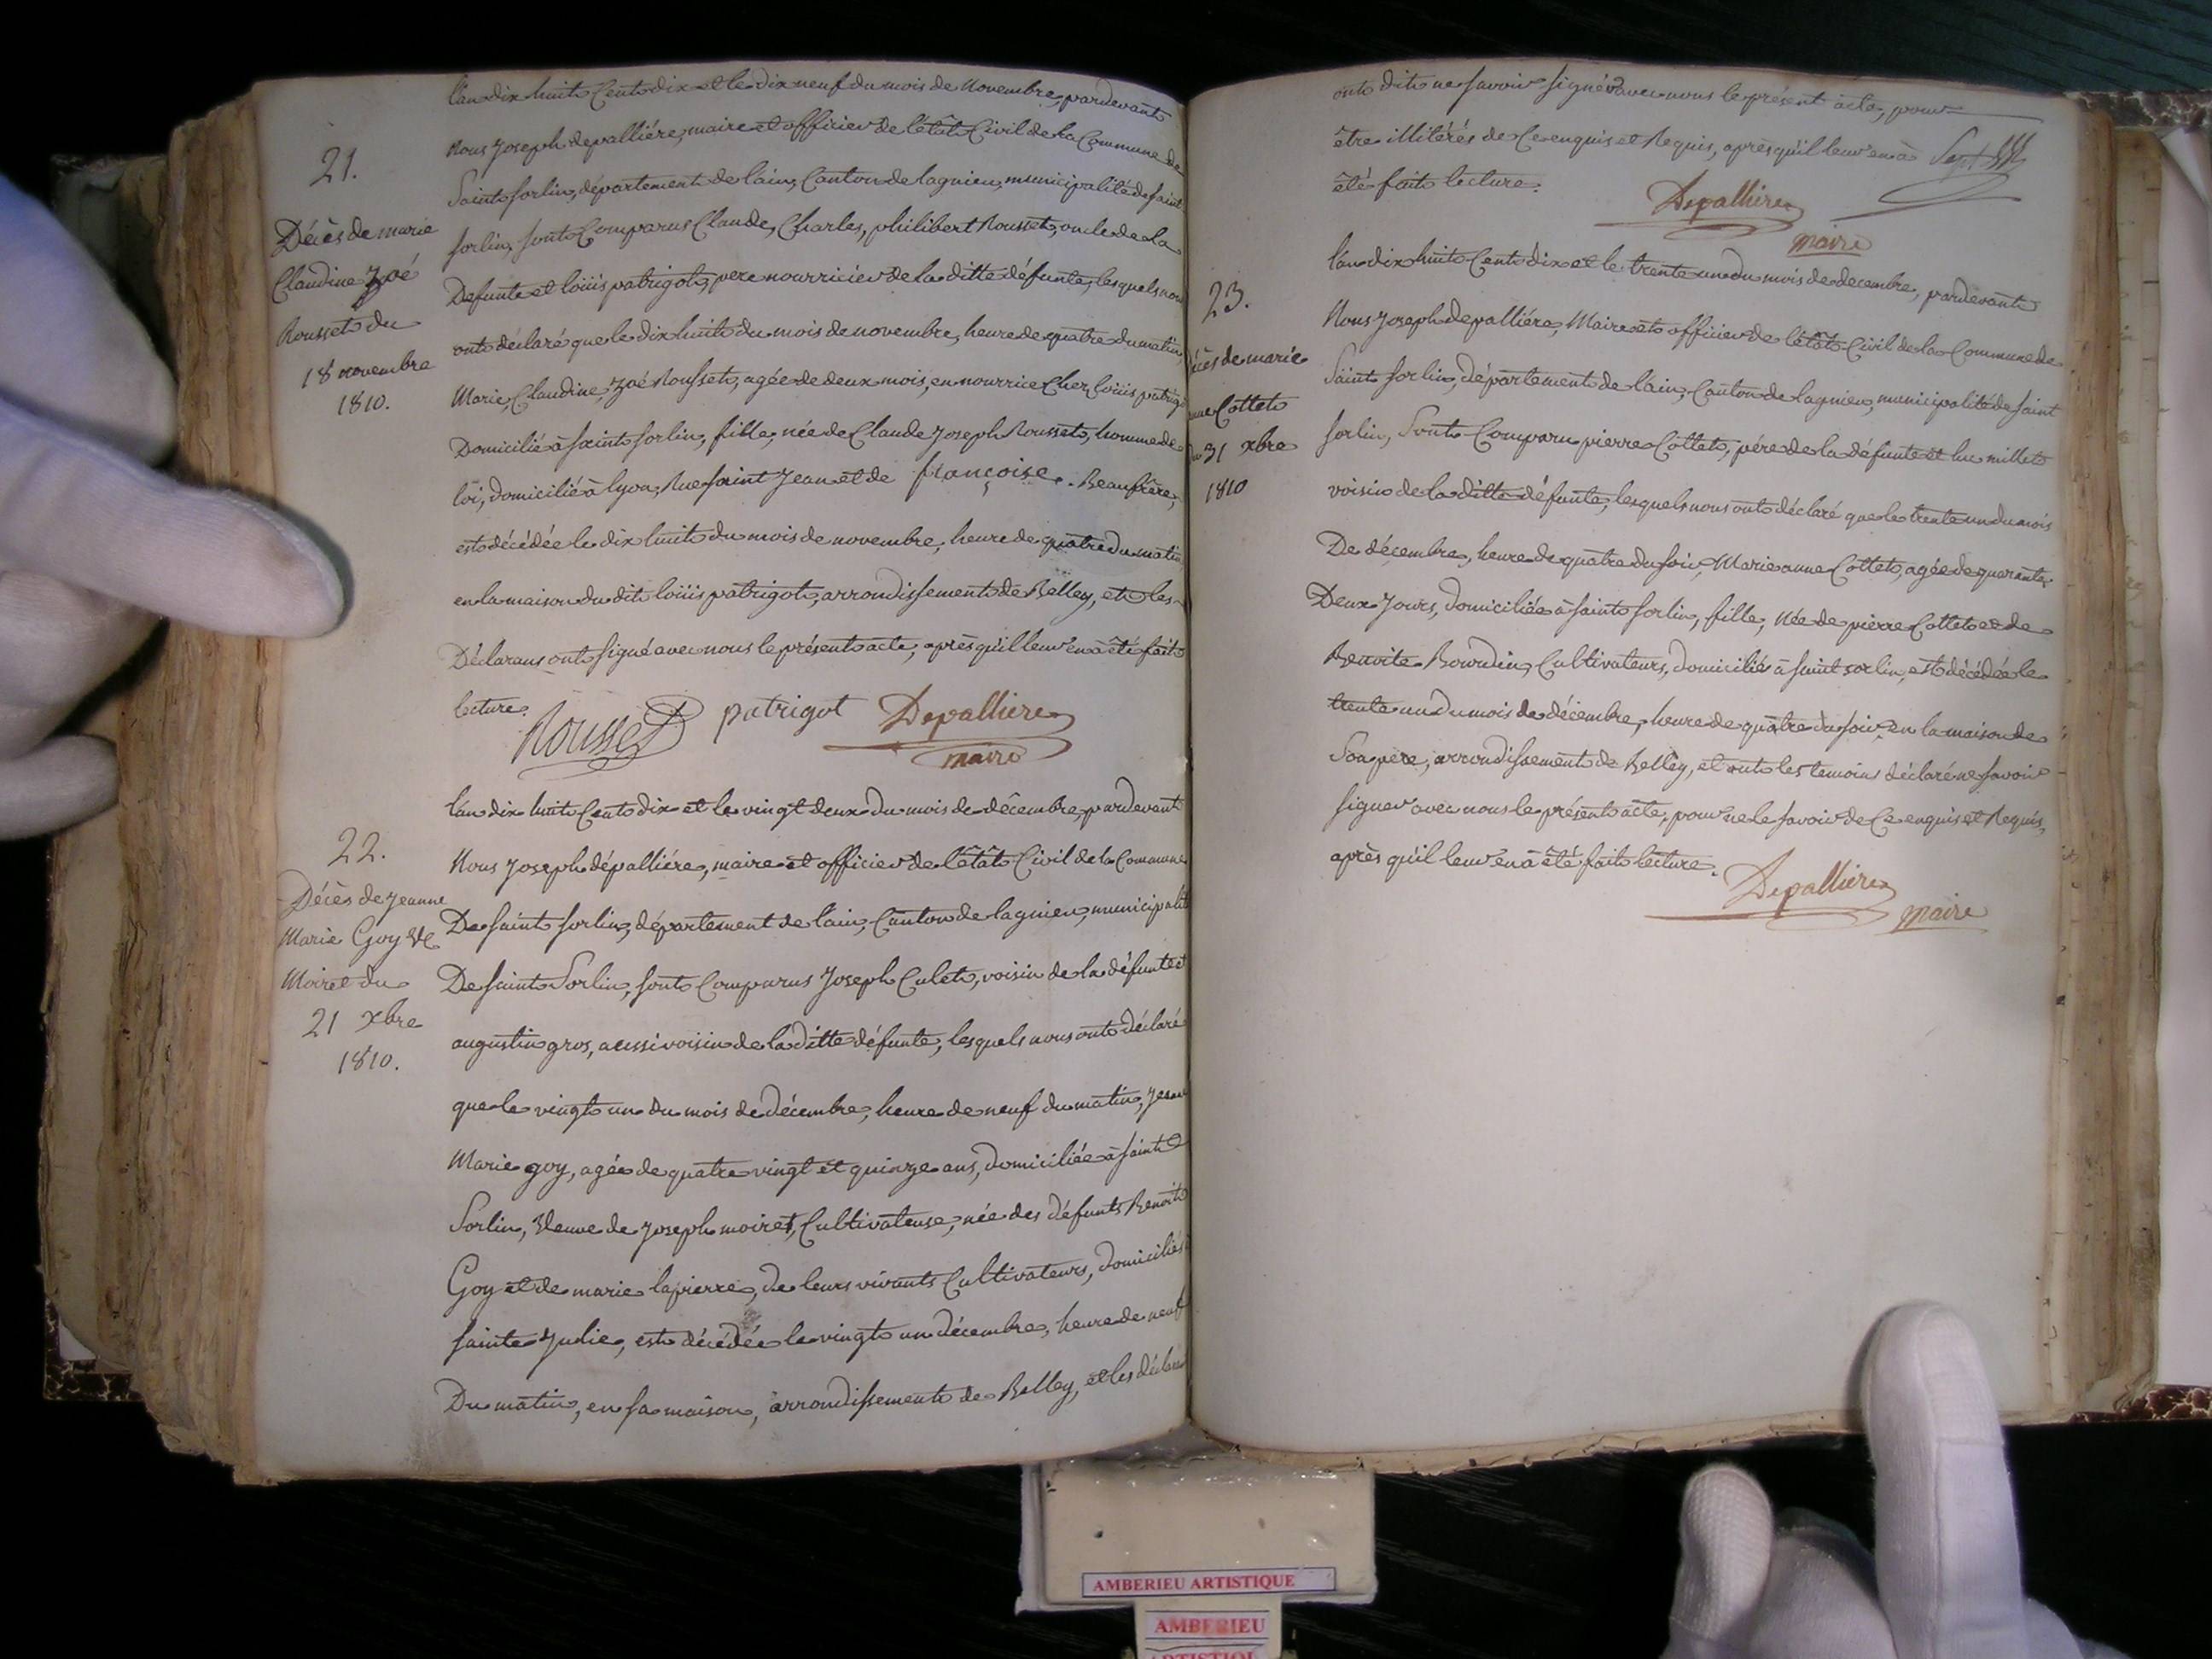 21.
Décès de marie
Claudine Zoé
Rousset du
18 novembre
1810.
l'an dix huit Cent dix et le dix neuf du mois de Novembre, pardevant
Nous Joseph depalliére, maire et officier de l'état Civil de la Commune de
Saint Sorlin, département de l'ain, Canton de lagnieu, municipalité de saint
sorlin, sont Comparus Claude, Charles, philibert Rousset, oncle de la
Defunte et loüis patrigot, pere nourricier de la ditte défunte, lesquels nous
ont déclaré que le dix huit du mois de novembre, heure de quatre du matin,
Marie, Claudine, Zoé Rousset, agée de deux mois, en nourrice Chez loüis patrigo
Domicilié à saint sorlin, fille, née de Claude Joseph Rousset, homme de
loi, domicilié à lyon, Rue saint Jean et de françoise. Beaufrère,
est décédée le dix huit du mois de novembre, heure de quatre du matin
en la maison du dit loüis patrigot, arrondissement de Belley, et les
Déclarans ont signé avec nous le présent acte, après qu'il leur en à été fait
lecture.
Rousset patrigot Depalliere
maire
22.
Décès de Jeanne
Marie Goy Ve
Moiret du
21 xbre
1810.
l'an dix huit Cent dix et le vingt deux du mois de décembre, pardevant
Nous Joseph dépalliére, maire et officier de l'état Civil de la Commune
De saint sorlin, département de l'ain, Canton de lagnieu, municipalité
De saint Sorlin, sont Comparus Joseph Culet, voisin de la défunte et
augustin gros, aussi voisin de la ditte défunte, lesquels nous ont déclaré
que le vingt un du mois de décembre, heure de neuf du matin, Jeanne
Marie goy, agée de quatre vingt et quinze ans, domiciliée à saint
Sorlin, Veuve de Joseph moiret, Cultivateuse, née des défunts Benoit
Goy et de marie lapierre, de leurs vivants Cultivateurs, domiciliés
sainte Julie, est décédée le vingt un décembre, heure de neuf
Du matin, en sa maison, arrondissement de Belley, et les déclara
ont dit ne savoir signér avec nous le présent acte, pour
être illitérés de Ce enquis et Requis, après qu'il leur en à
été fait lecture.
Depalliere
maire
23.
écès de marie
anne Cottet
du 31 xbre
1810
l'an dix huit Cent dix et le trente un du mois de decembre, pardevant
Nous Joseph depalliére, Maire et officier de l'état Civil de la Commune de
Saint Sorlin, département de l'ain, Canton de lagnieu, municipalité de saint
sorlin, Sont Comparu pierre Cottet, pére de la défunte et luc millet
voisin de la ditte défunte, lesquels nous ont déclaré que le trente un du mois
De décembre, heure de quatre du soir, Marie anne Cottet, agée de quarante
Deux Jours, domiciliée à saint sorlin, fille, née de pierre Cottet et de
Benoite Bourdin, Cultivateurs, domiciliés à saint sorlin, est décédée le
trente un du mois de décembre, heure de quatre du soir, en la maison de
Son père, arrondissement de Belley, et ont les temoins déclaré ne savoir
signer avec nous le présent acte, pour ne le savoir de Ce enquis et Requis,
après qu'il leur en à été fait lecture.
Depalliere
maire
AMBERIEU ARTISTIQUE
AMBERIEU
ARTISTIQUE